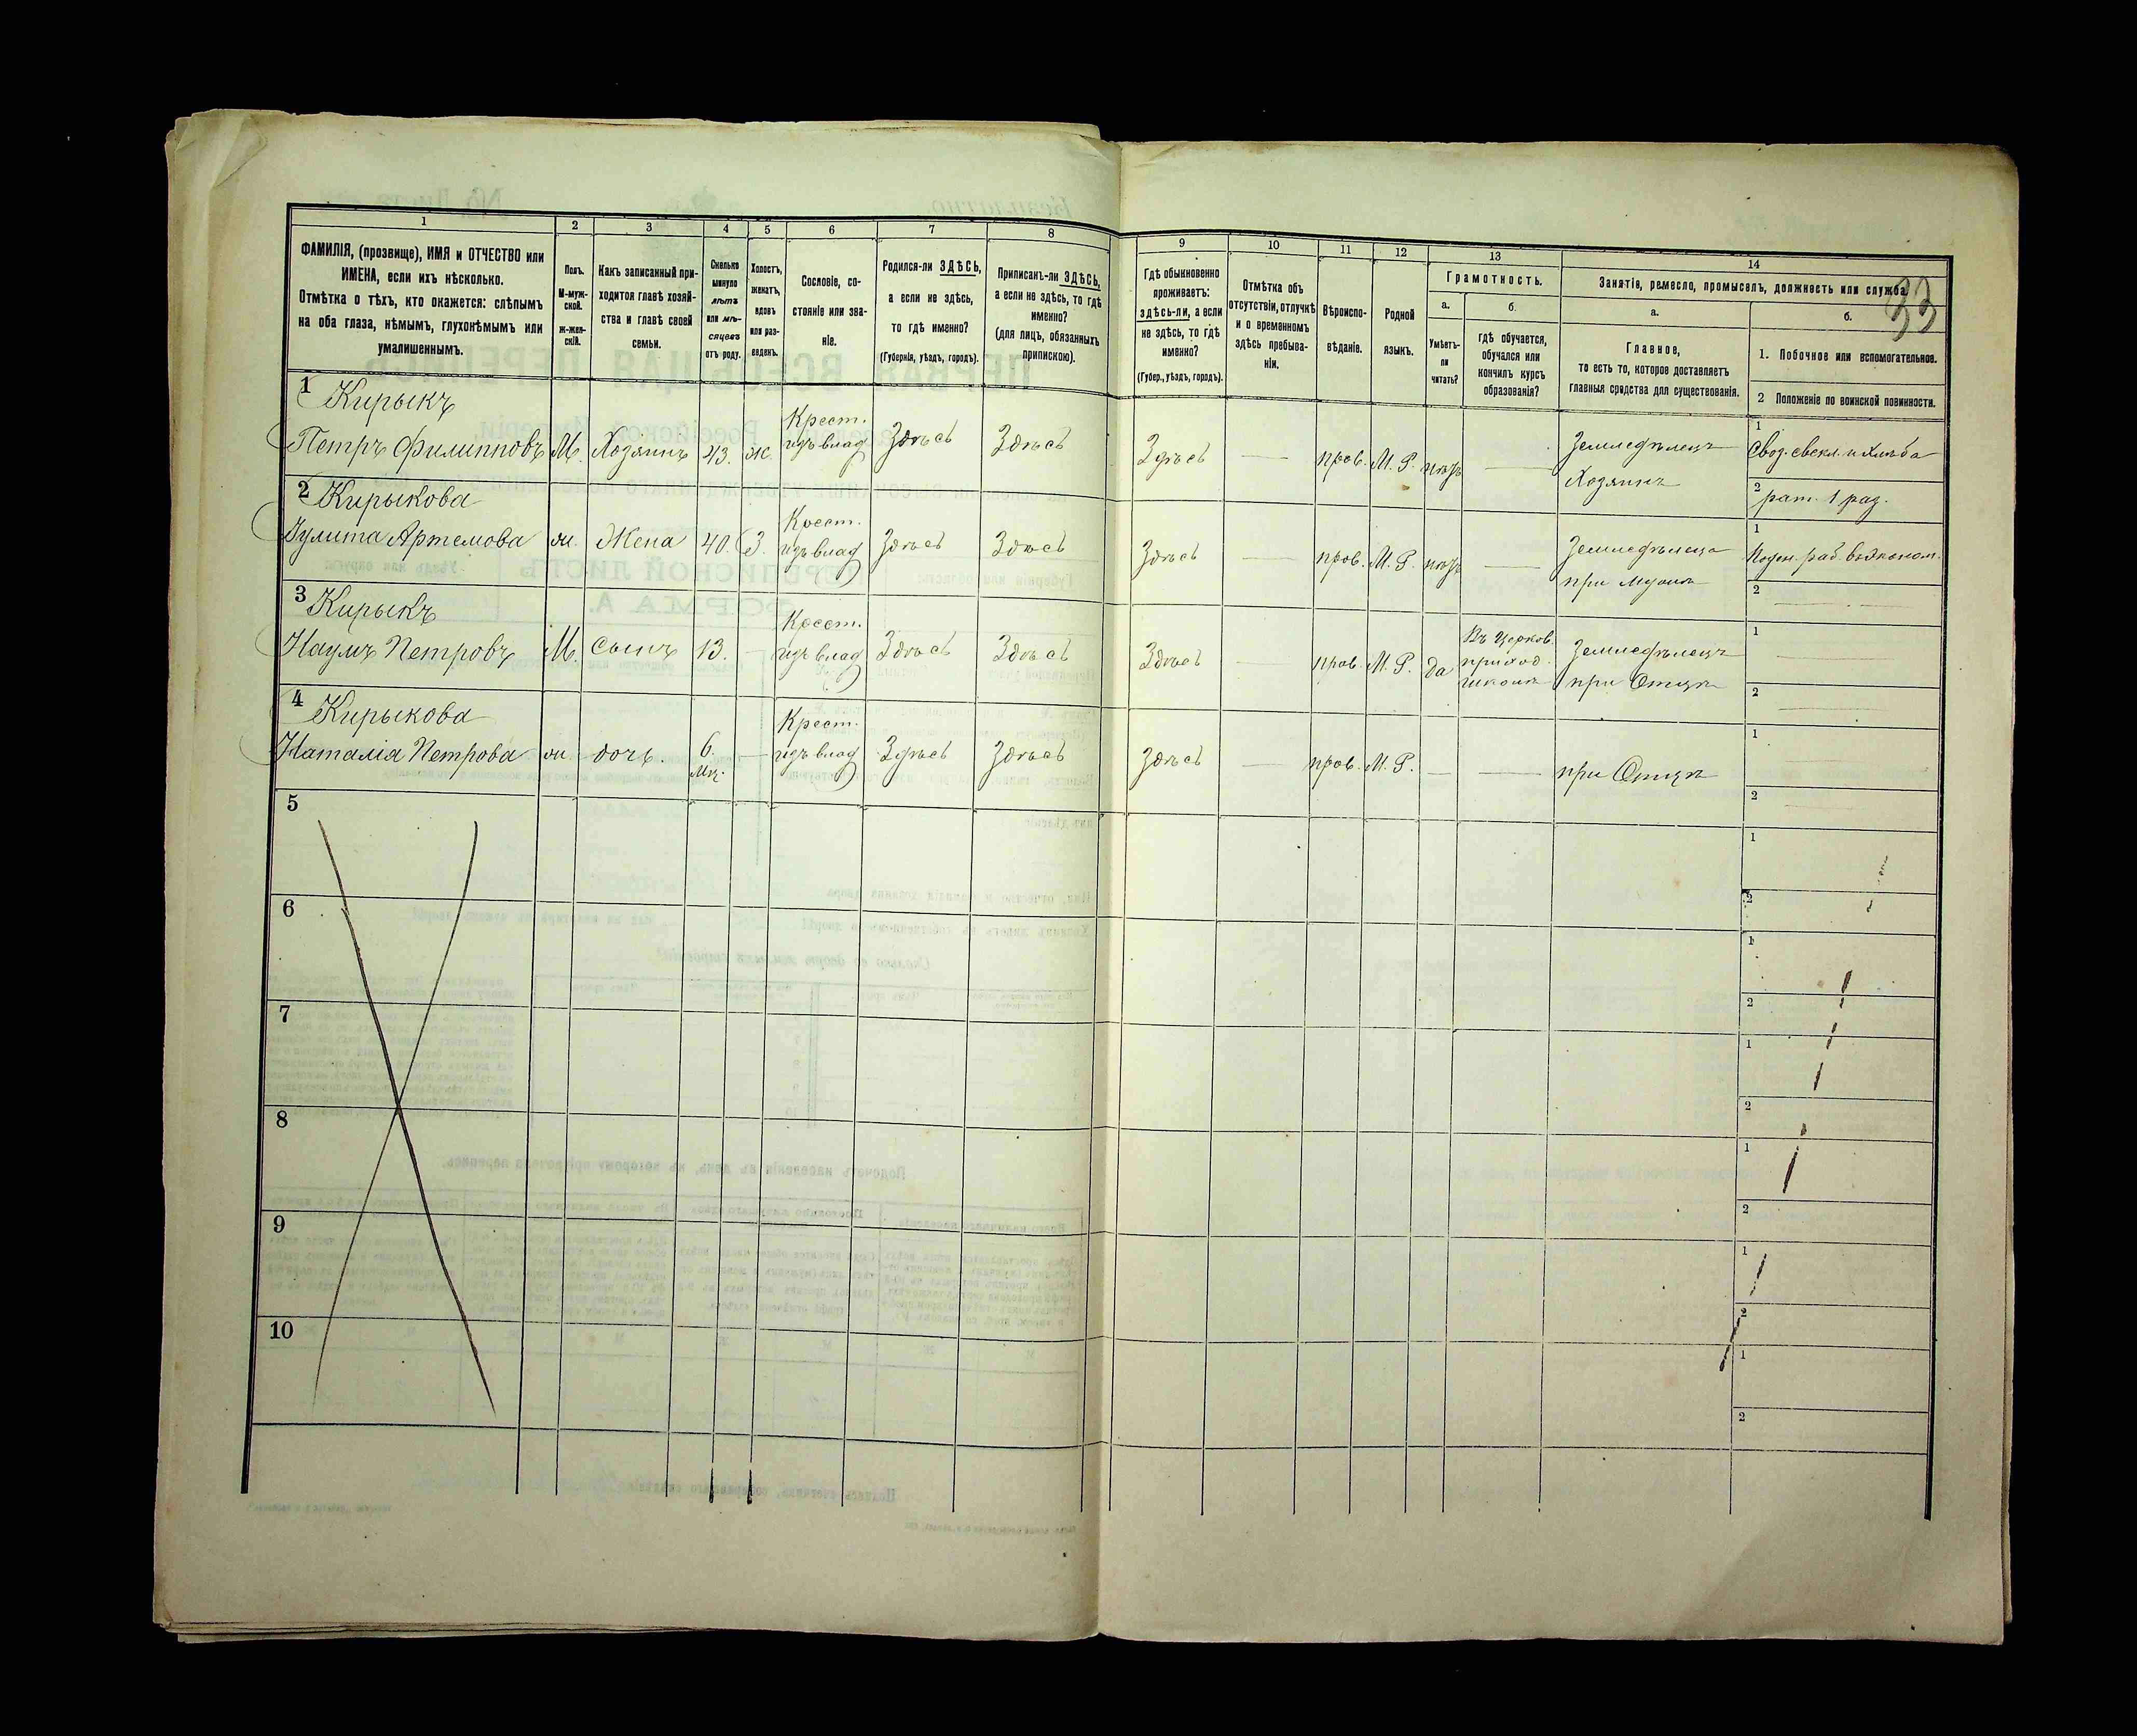 33
1 2 3 4 5 6 7 8 9 10 11 12 13 14
ФАМИЛІЯ, (прозвище), ИМЯ и ОТЧЕСТВО или
ИМЕНА, если ихъ нѣсколько.
Отмѣтка о тѣхъ, кто окажется: слѣпымъ
на оба глаза, нѣмымъ, глухонѣмымъ или
умалишеннымъ.
Полъ.
М-муж-
ской.
ж-жен-
скій.
Какъ записанный при-
ходится главѣ хозяй-
ства и главѣ своей
семьи.
Сколько
минуло
лѣтъ
или мѣ-
сяцевъ
отъ роду.
Холостъ,
женатъ,
вдовъ
или раз-
веденъ.
Сословіе, со-
стояніе или зва-
ніе.
Родился-ли ЗДѢСЬ,
а если не здѣсь,
то гдѣ именно?
(Губернія, уѣздъ, городъ).
Приписанъ-ли ЗДѢСЬ,
а если не здѣсь, то гдѣ
именно?
(для лицъ, обязанныхъ
припискою).
Гдѣ обыкновенно
проживаетъ:
здѣсь-ли, а если
не здѣсь, то гдѣ
именно?
(Губер., уѣздъ, городъ).
Отмѣтка объ
отсутствіи, отлучкѣ
и о временномъ
здѣсь пребыва-
ніи.
Вѣроиспо-
вѣданіе.
Родной
языкъ.
Грамотность.
а.
Умѣетъ-
ли
читать?
б.
гдѣ обучается,
обучался или
кончилъ курсъ
образованія?
Занятіе, ремесло, промыселъ, должность или служба.
а.
Главное,
то есть то, которое доставляетъ
главныя средства для существованія.
б.
1. Побочное или вспомогательное.
2 Положеніе по воинской повинности.
1 Кирыкъ
Петръ Филипповъ М. Хозяинъ 43. ж. Крест. изъ влад Здѣсь Здѣсь Здѣсь — прав. М. Р. нѣтъ — Земледѣлецъ Хозяинъ
1 Своз. свекл. и хлѣба
2 рат. 1 раз.
2 Кирыкова
Улита Артемова ж. Жена 40. З. Крест. изъ влад Здѣсь Здѣсь Здѣсь — прав. М. Р. нѣтъ — Земледѣлица при мужѣ
1 Поден. раб. въ эконом.
2 —
3 Кирыкъ
Наумъ Петровъ М. Сынъ 13. — Крест. изъ влад Здѣсь Здѣсь Здѣсь — прав. М. Р. да Въ церков. приход. школѣ Земледѣлецъ при Отцѣ
1 —
2 —
4 Кирыкова
Наталія Петрова ж. дочь. 6. Мц. — Крест. изъ влад Здѣсь Здѣсь Здѣсь — прав. М. Р. — — при Отцѣ
1
2 —
5
1
2
6
1
2
7
1
2
8
1
2
9
1
2
10
1
2